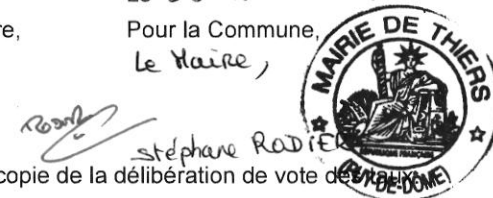 re,
Pour la Commune,
Le Maire,
Stéphane RODIER
MAIRIE DE THIERS
(PUY-DE-DÔME)
copie de la délibération de vote des taux